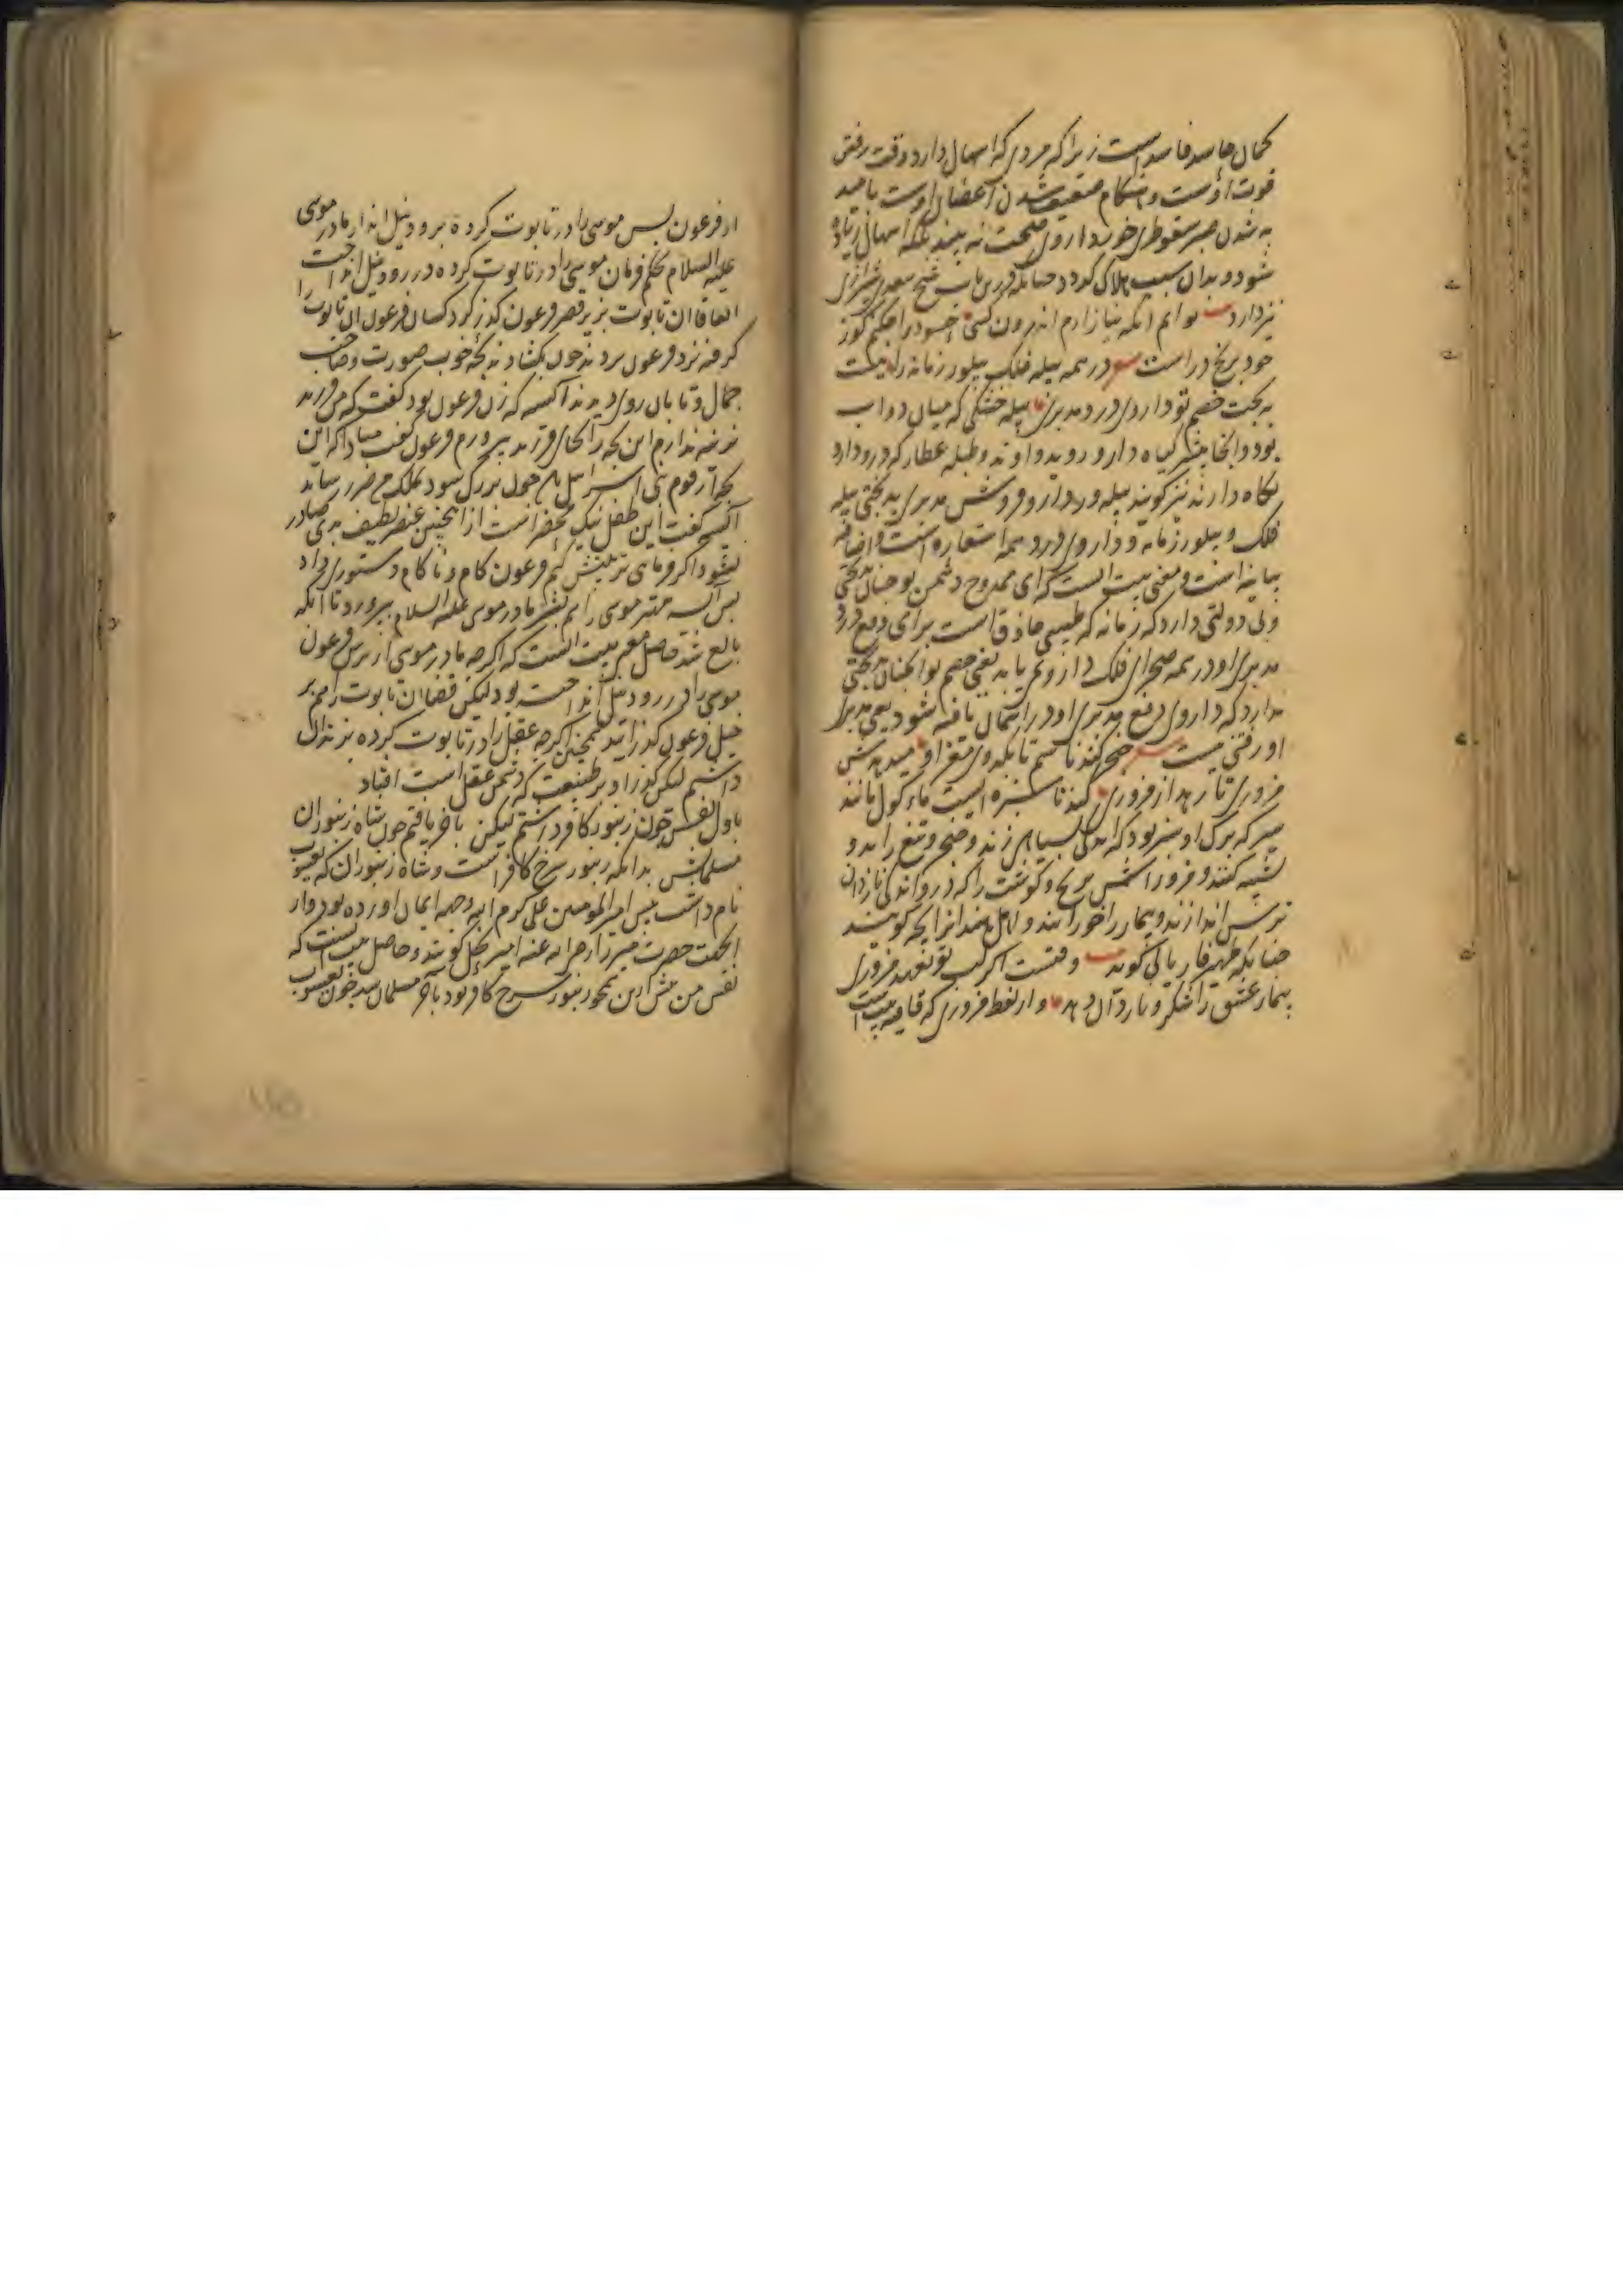 کمان حاسد فاسد است زیرا که مردی که اسهال دارد وقت رفتن
قوت اوست و هنگام ضعیف شدن اعضای اوست بامید
به شدن صبر سقوطری خورد از وی صحت نه بیند بلکه اسهال زیاده
شود و بدان سبب هلاک گردد چنانکه درین باب شیخ سعدی شیرازی
نیز دارد بیت توانم آنکه نیازارم اندرون کسی حسود را چکنم کو ز
خود برنج در است در همه پیله فلک پیلور زمانه را نیست
به بخت خصم تو داروی درد مدبری پیله خشکی که میان دو آب
بود و آنجا بیشتر گیاه دارو روید و آوند و طبله عطار که درو دارو
نگاه دارند نیز گویند پیلور دارو فروش مدبری بدبختی پیله
فلک و پیلور زمانه و داروی درد همه استعاره است و اضافه
بیانیه است و معنی بیت آنست که ای ممدوح دشمن تو چنان بدبختی
و بی دولتی دارد که زمانه که طبیبی حاذق است برای دفع درد
مدبری او در همه صحرای فلک داروی نمی یابد یعنی خصم تو آنچنان بدبختی
ندارد که داروی دفع مدبری او در آسمان یافته شود یعنی مدبری
او رفتنی نیست
مزوری تا رهد از مزوری گندنا سبزه ایست
سیر که برگ او سبز بود که اندکی بسیاهی زند و خنجر و تیغ را بدو
تشبیه کنند و مزور آش برنج و گوشت را که درو اندکی نار دان
ترش اندازند و بیمار را خورانند و اهل هند آنرا یخه گویند
چنانکه ظهیر فاریابی گوید بیت وقتست اگر لب تو بعهد مزوری
بیمار عشق را شکر و نار دان دهد و از لفظ مزوری که قافیه بیت است
از فرعون پس موسی را در تابوت کرده برود نیل انداز مادر موسی
علیه السلام بحکم فرمان موسی را در تابوت کرده در رود نیل انداخت
اتفاقا آن تابوت بزیر قصر فرعون گذر کرد کسان فرعون آن تابوت را
گرفته نزد فرعون بردند چون بکشادند بچه خوب صورت و صاحب
جمال و تابان روی دیدند آسیه که زن فرعون بود گفت که من فرزند
نرینه ندارم این بچه را بجای فرزند بپرورم فرعون گفت مبادا که این
بچه از قوم بنی اسرائیل باشد چون بزرگ شود بملک من ضرر رساند
آسیه گفت این طفل نیک محضر است از اینچنین عنصر لطیف بدی صادر
نشود اگر فرمای تربیتش کنم فرعون کام و ناکام دستوری داد
پس آسیه مهتر موسی را هم بشیر مادر موسی علیه السلام بپرورد تا آنکه
بالغ شد حاصل معنی بیت آنست که اگرچه مادر موسی از ترس فرعون
موسی را در رود نیل انداخته بود لیکن قضا آن تابوت را هم بر
خیل فرعون گذرانید همچنین اگرچه عقل را در تابوت کرده نیز نزل
داشتم لیکن گذر او بر طبیعت که دشمن عقل است افتاد
باول نفس چون زنبور کافر داشتم لیکن باخر یافتم چون شاه زنبوران
مسلمانش بدانکه زنبور سرخ کافر است و شاه زنبوران که یعسوب
نام داشت پیش امیر المومنین علی کرم الله وجهه ایمان آورده بود و از
آنجهت حضرت میر را رضی الله عنه امیر نحل گویند و حاصل بیت آنست که
نفس من پیش ازین همچو زنبور سرخ کافر بود باخر مسلمان شد چون یعسوب